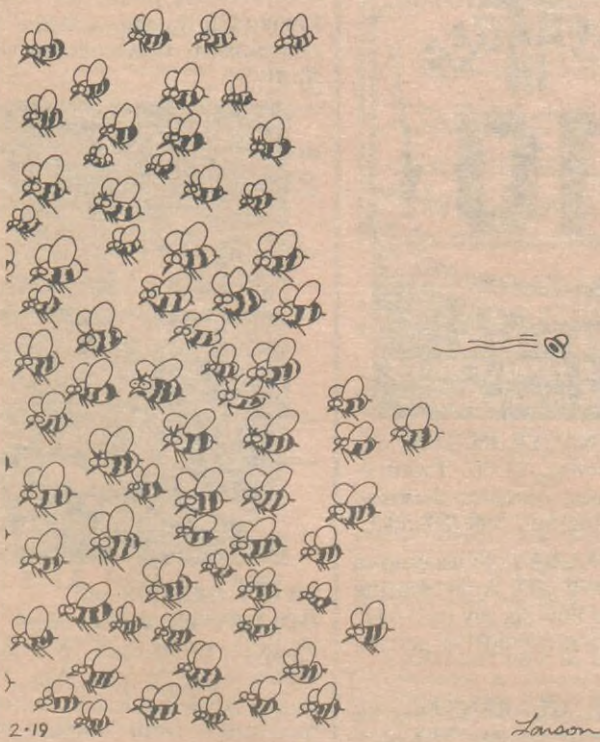 2•19
Larson